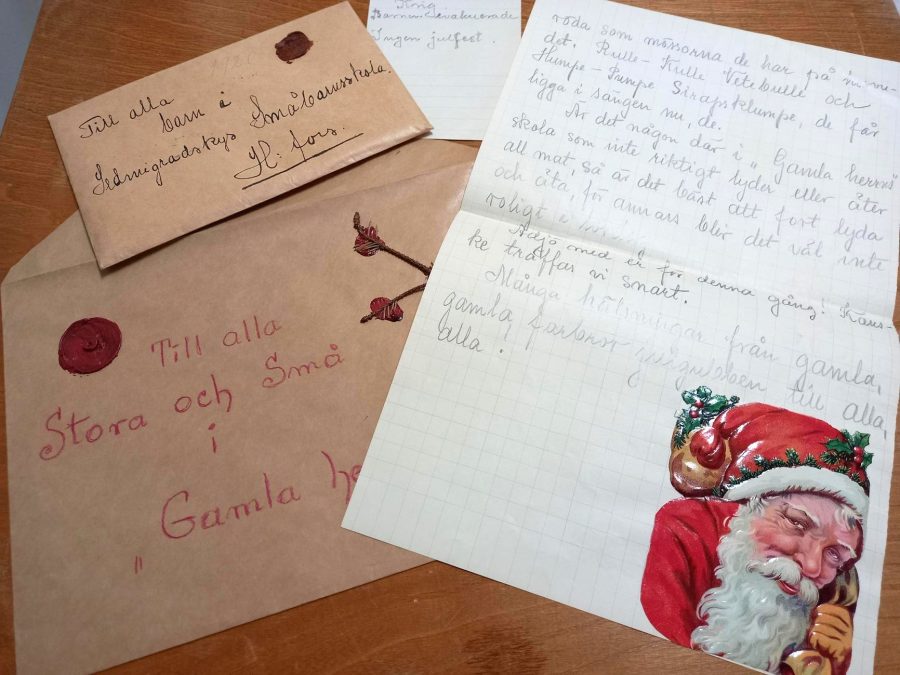 Krig
Barnen evakuerade
Ingen julfest.
Till alla
barn i
Jedmigradskys Småbarnsskola.
H:fors.
Till alla
Stora och Små
i
„Gamla he
röda som mössorna de har på huvu-
det. Rulle-Kulle Vetebulle och
Humpe-Pumpe Sirapsklumpe, de får
ligga i sängen nu, de.
Är det någon där i „Gamla herrns"
skola som inte riktigt lyder eller äter
all mat, så är det bäst att fort lyda
och äta, för annars blir det väl inte
roligt
Adjö med er för denna gång! Kans-
ke träffas vi snart.
Många hälsningar från gamla,
gamla farbror julgubben till alla,
alla!